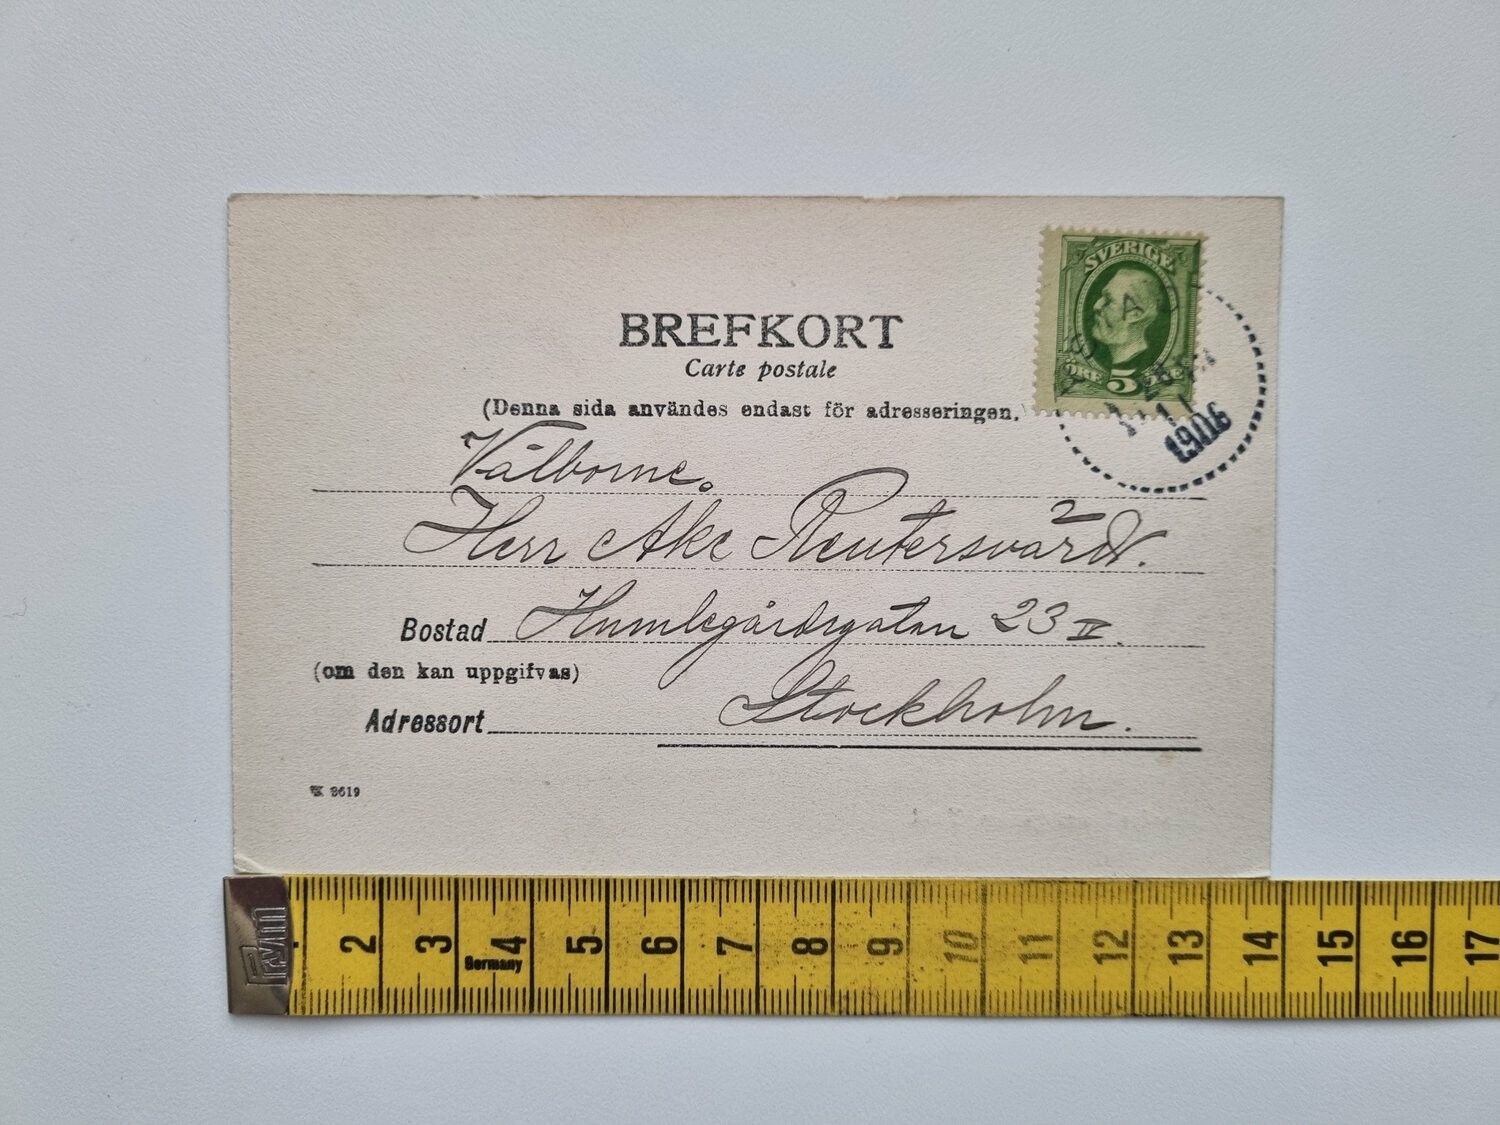 SVERIGE
ÖRE 5
1906
BREFKORT
Carte postale
(Denna sida användes endast för adresseringen.
Välborne.
Herr Åke Reuterswärd.
Bostad Humlegårdsgatan 23 IV.
(om den kan uppgifvas)
Adressort Stockholm.
3619
Prym
2 3 4 5 6 7 8 9 10 11 12 13 14 15 16 17
Germany